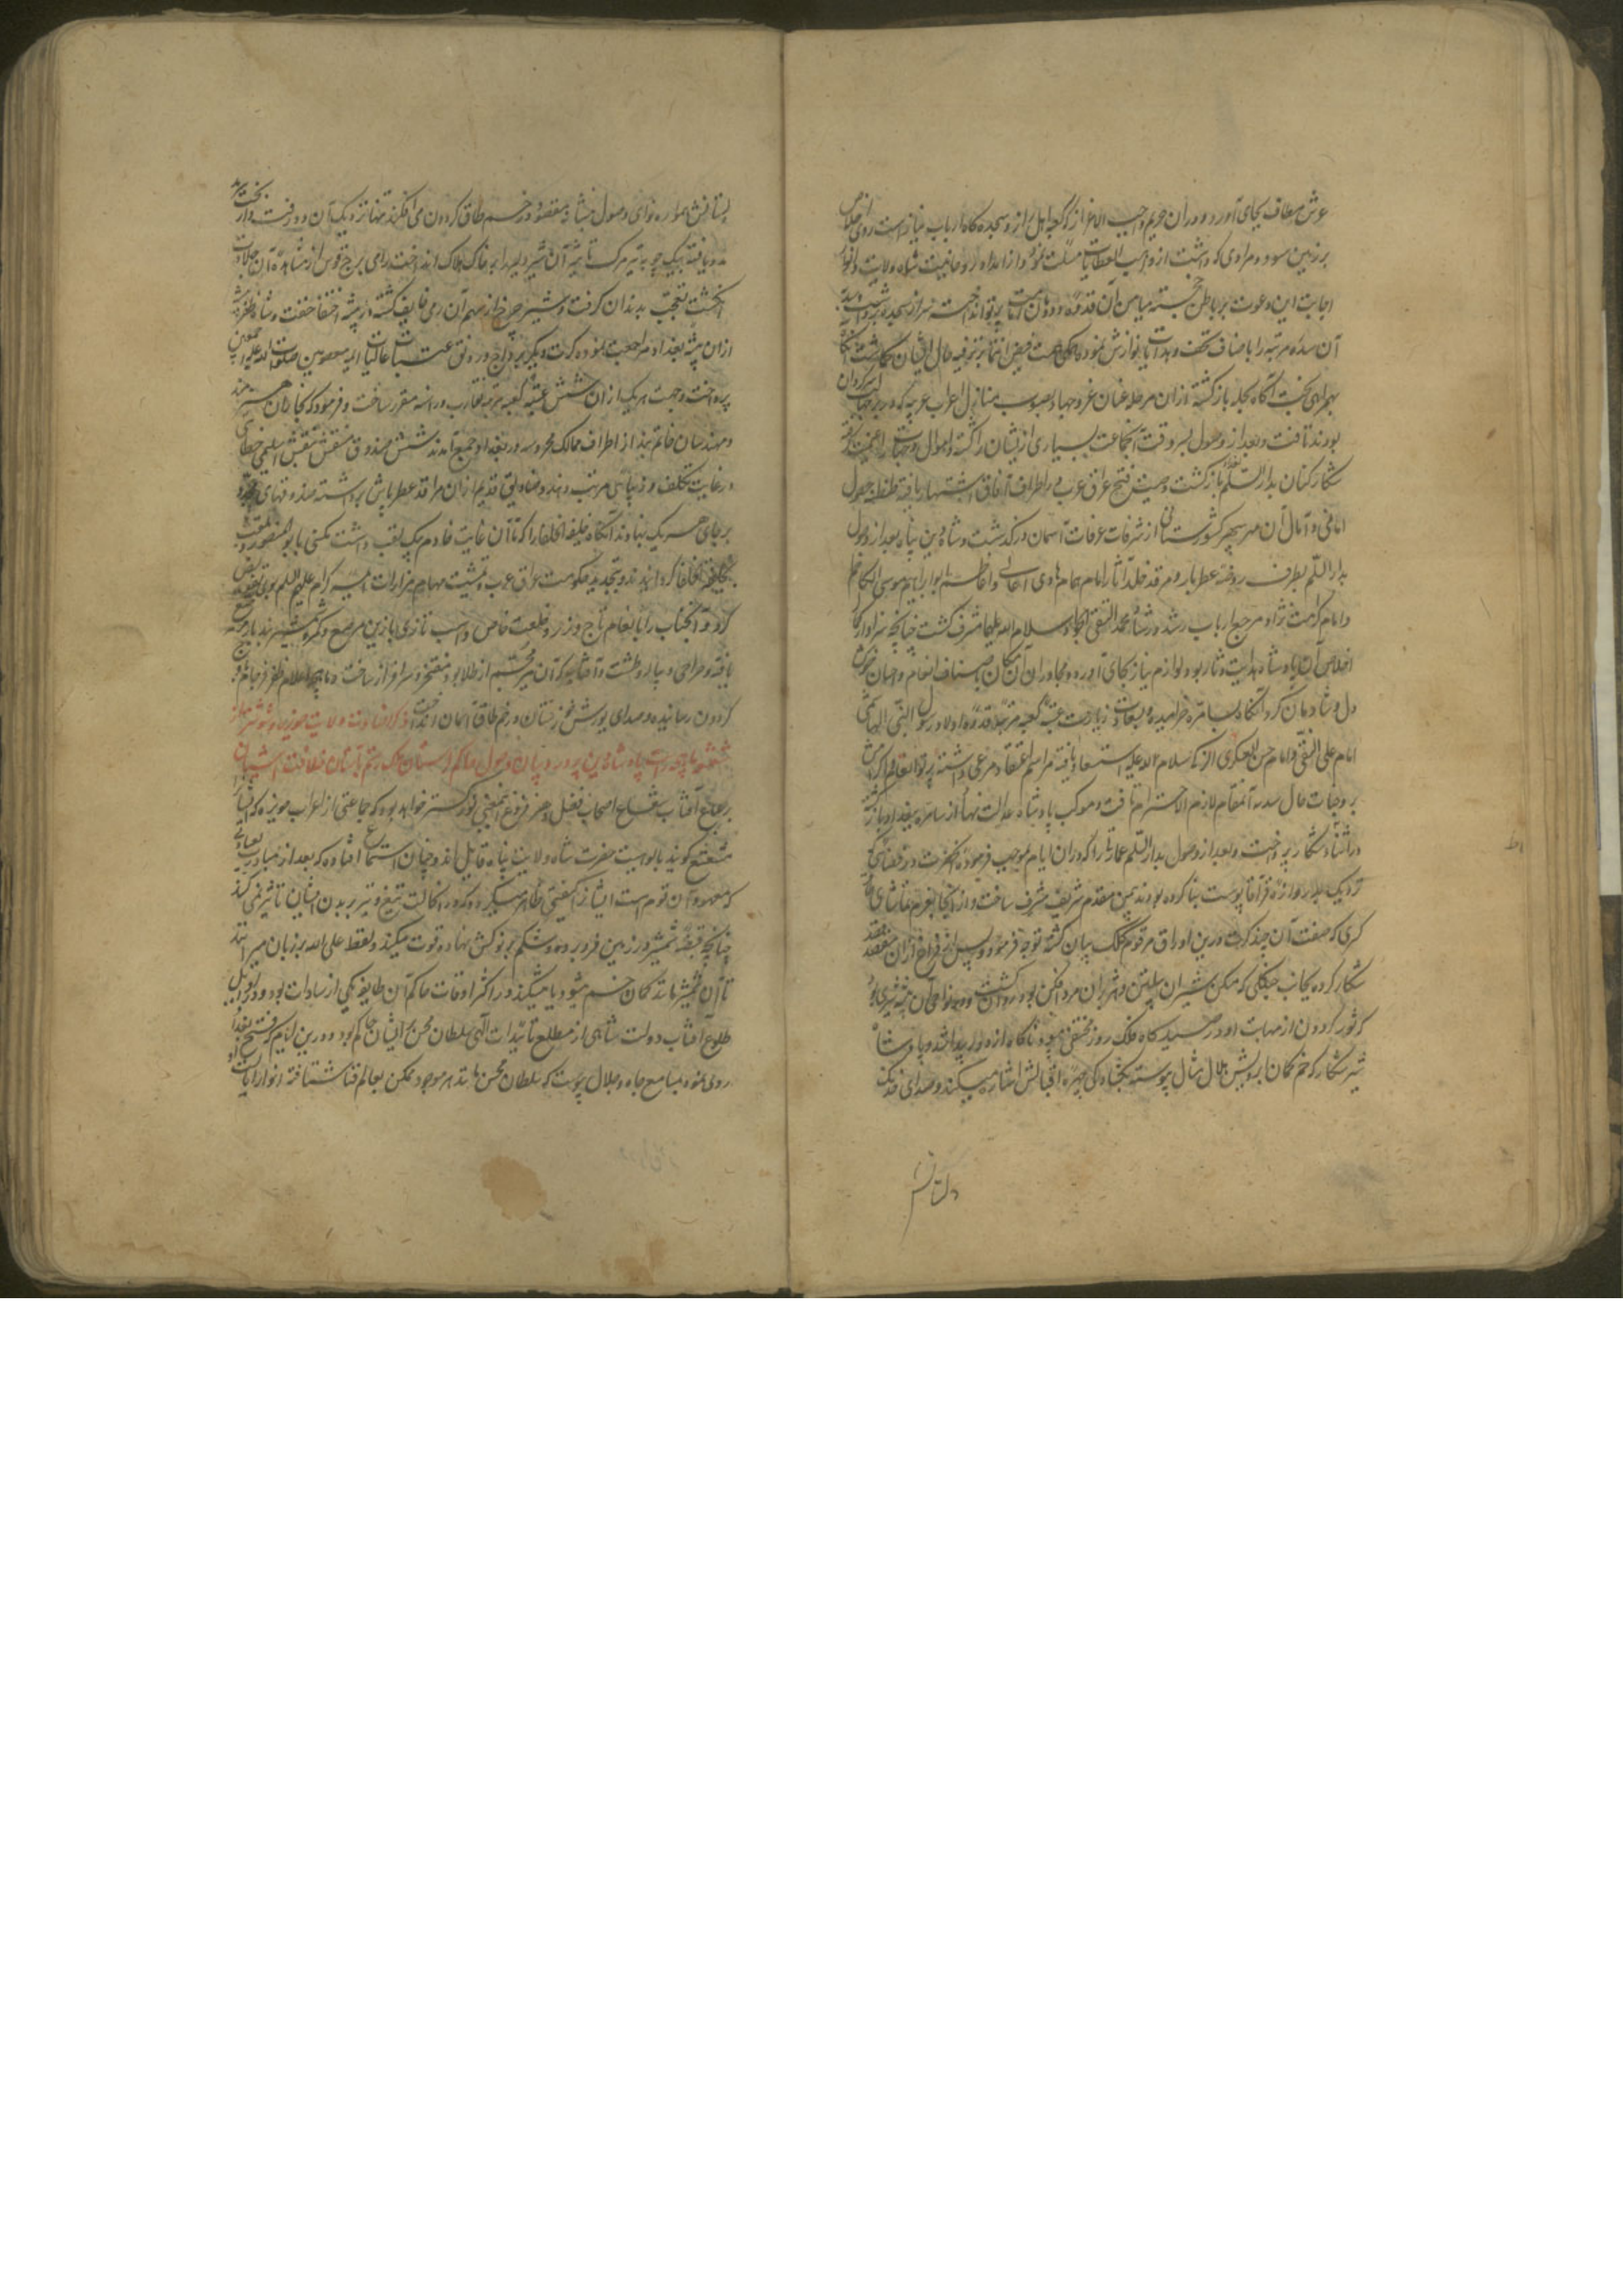 عرش مطاف بجای آورد و در آن حریم واجب الاعزاز که کعبه اهل راز و سجده گاه ارباب نیاز است روی اخلاص
بر زمین سود و مرادی که داشت از واهب العطایات مسئلت نمود و از امداد روحانیت شاه ولایت انوار
اجابت این دعوت بر باطن خجسته میامن آن قدوه دودمان پرتو انداخت سر از سجده برداشت
آن سده مرتبه را باصناف تحف و هدایا نوازش نموده همت فیض انتما بترفیه حال ایشان گماشت آنگاه
بهمراهی بخت آگاه بحله بازگشته از آن مرحله عنان غزو جهاد بصوب منازل اعراب عربه که در بر جهالت سرگردان
بودند تافت و بعد از وصول بسروقت آنجماعت بسیاری از ایشان را کشته و اموال و جهات را غنیمت گرفته
شکار کنان بدار السلم بغداد بازگشت وصیت فتح عراق عرب در اطراف آفاق اشتهار یافته طنطنه حصول
امانی و آمال آن مهر سپهر کشورستانی از شرفات غرفات آسمان درگذشت و شاه دین پناه بعد از وصول
بدار السلم بطرف روضه عطربار و مرقد خلد آثار امام همام هادی اعالی و اعاظم ابو ابراهیم موسی الکاظم
و امام کرامت نژاد مرجع ارباب رشد و رشاد محمد التقی الجواد سلام الله علیهما مشرف گشت چنانچه سزاوار کمال
اخلاص آن پادشاه هدایت دثار بود لوازم نیاز بجای آورده و مجاوران آن مکان باصناف انعام و احسان خوش
دل و شادمان کرد آنگاه بسامره خرامیده و بسعادت زیارت عتبه کعبه مرتبه قدوه اولاد رسول النبی الهاشمی
امام علی النقی و امام حسن العسکری الزکی سلام الله علیه استسعاد یافته مراسم اعتقاد مرعی داشته پرتو انعام و اکرامش
بر وجنات حال سدنه آنمقام لازم الاحترام تافت و موکب پادشاه عدالت نهاد از سامره ببغداد بازگشته
در اثناء شکار پرداخت و بعد از وصول بدار السلم عماراتی را که در آن ایام بموجب فرموده آنحضرت در فضای
نزدیک بدروازه قراقاپوست بنا کرده بودند بیمن مقدم شریف مشرف ساخت و از آنجا بعزم تماشای طاق
کسری که صفت آن چند کرت درین اوراق مرقوم کلک بیان گشته توجه فرمود و پس از فراغ از آن مقصد
شکار کرده بجانب جنگلی که مسکن شیران پیلتن و هژبران مردافکن بود روان گشت و در نواحی آن بیشه شیری بود
که ثور گردون از مهابت او در صیدگاه فلک روز مختفی میبود ناگاه از دور پیدا شد و پادشاه
شیر شکار که خم کمان ابرویش هلال مثال پیوسته بکنج ماه کی چهره اقبالش اشارت میکند و صدای خدنگ
دلستانش
لستانش همواره نوای وصول بنشانه مقصود در خم طاق گردون می افکند تنها نزدیک آن دد رفت و از بخت مدد
مدد یافته بیک چوبه تیر مرگ تأثیر آن شیر دلیر را بر خاک هلاک انداخت رامی برج قوس از مشاهده آن جلادت
انگشت تعجب بدندان گرفت و شیر چرخ از سهم آن رمی خایف گشته در بیشه اختفا خفت و شاه ظفر پیشه
از آن بیشه ببغداد مراجعت نموده کرت دیگر برواج و رونق عتبات عالیات ائمه معصومین صلوات الله علیهم اجمعین
پرداخت و جهت هر یک از آن شش عتبه کعبه مرتبه نقارب در آنسه مقرر ساخت و فرمود که نجاران هنرمند
و مهندسان خاتم بند از اطراف ممالک محروسه در بغداد جمع آمدند شش صندوق منقش بنقش اسلیمی خطای
در غایت تکلف و زیبایی مرتب دهند و صنادیق قدیم از آن مراقد عطرپاش برداشته صندوقهای مجدد
بر جای هر یک بنهادند آنگاه خلیفه الخلفا را که تا آن غایت خادم بیک لقب داشت مکنی بابو المنصور و ملقب
بخلیفه الخلفا گردانیدند و بتجدید حکومت عراق عرب و تمشیت مهام مزارات ائمه کرام علیهم السلم بدو تفویض
کرد و آنجناب را بانعام تاج و زر و خلعت خاص و اسب تازی با زین مرصع و کمر شمشیر بند
یافته و صراحی و پیاله و طشت و آفتابه که آن نیز مجسم از طلا بود مفتخر و سرافراز ساخت و ماهچه اعلام ظفر فرجام باوج
گردون رسانیده و صدای یورش خوزستان در خم طاق آسمان انداخت ذکر افتادن ولایت حویزه و شوشتر
پادشاه دین پرور و بیان وصول حاکم لرستان ملک رستم بآستان خلافت آشیان
بر طالع آفتاب شعاع اصحاب فضل و هنر فروغ این معنی نورگستر خواهد بود که جماعتی از اعراب حویزه که ایشانرا
مشعشع گویند بالوهیت حضرت شاه ولایت پناه قایل اند و چنان استماع افتاده که بعد از مبادرت بعبادتی
که معهود آن قوم است ایشانرا کیفیتی ظاهر میگردد که در آنحالت تیغ و تیر بر بدن ایشان تأثیر نمی کند
چنانچه قبضه شمشیر در زمین فرو برده و شکم بر نوکش نهاده قوت میکنند و لفظ علی الله بر زبان میرانند
تا آن شمشیر مانند کمان خم میشود یا میشکند و در اکثر اوقات حاکم آن طایفه یکی از سادات بود و در اوایل
طلوع آفتاب دولت شاهی از مطلع تأییدات الهی سلطان محسن بر ایشان حاکم بود و درین ایام که فتح بغداد
روی نمود بمسامع جاه و جلال پیوست که سلطان محسن مانند هر موجود ممکن بعالم فنا شتافته و انوار ایالت او